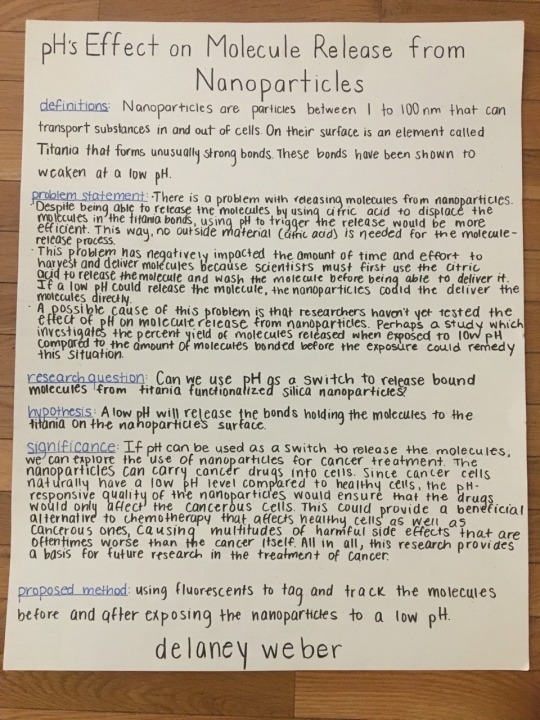 pH's Effect on Molecule Release from
Nanoparticles
definitions: Nanoparticles are particles between 1 to 100 nm that can
transport substances in and out of cells. On their surface is an element called
Titania that forms unusually strong bonds. These bonds have been shown to
weaken at a low pH.
problem statement: · There is a problem with releasing molecules from nanoparticles.
Despite being able to release the molecules by using citric acid to displace the
molecules in the titania bonds, using pH to trigger the release would be more
efficient. This way, no outside material (citric acid) is needed for the molecule-
release process.
· This problem has negatively impacted the amount of time and effort to
harvest and deliver molecules because scientists must first use the citric
acid to release the molecule and wash the molecule before being able to deliver it.
If a low pH could release the molecule, the nanoparticles could the deliver the
molecules directly.
· A possible cause of this problem is that researchers haven't yet tested the
effect of pH on molecule release from nanoparticles. Perhaps a study which
investigates the percent yield of molecules released when exposed to low pH
compared to the amount of molecules bonded before the exposure could remedy
this situation.
research question: Can we use pH as a switch to release bound
molecules from titania functionalized silica nanoparticles?
hypothesis: A low pH will release the bonds holding the molecules to the
titania on the nanoparticle's surface.
significance: If pH can be used as a switch to release the molecules,
we can explore the use of nanoparticles for cancer treatment. The
nanoparticles can carry cancer drugs into cells. Since cancer cells
naturally have a low pH level compared to healthy cells, the pH-
responsive quality of the nanoparticles would ensure that the drugs
would only affect the cancerous cells. This could provide a beneficial
alternative to chemotherapy that affects healthy cells as well as
cancerous ones, causing multitudes of harmful side effects that are
oftentimes worse than the cancer itself. All in all, this research provides
a basis for future research in the treatment of cancer.
proposed method: using fluorescents to tag and track the molecules
before and after exposing the nanoparticles to a low pH.
delaney weber